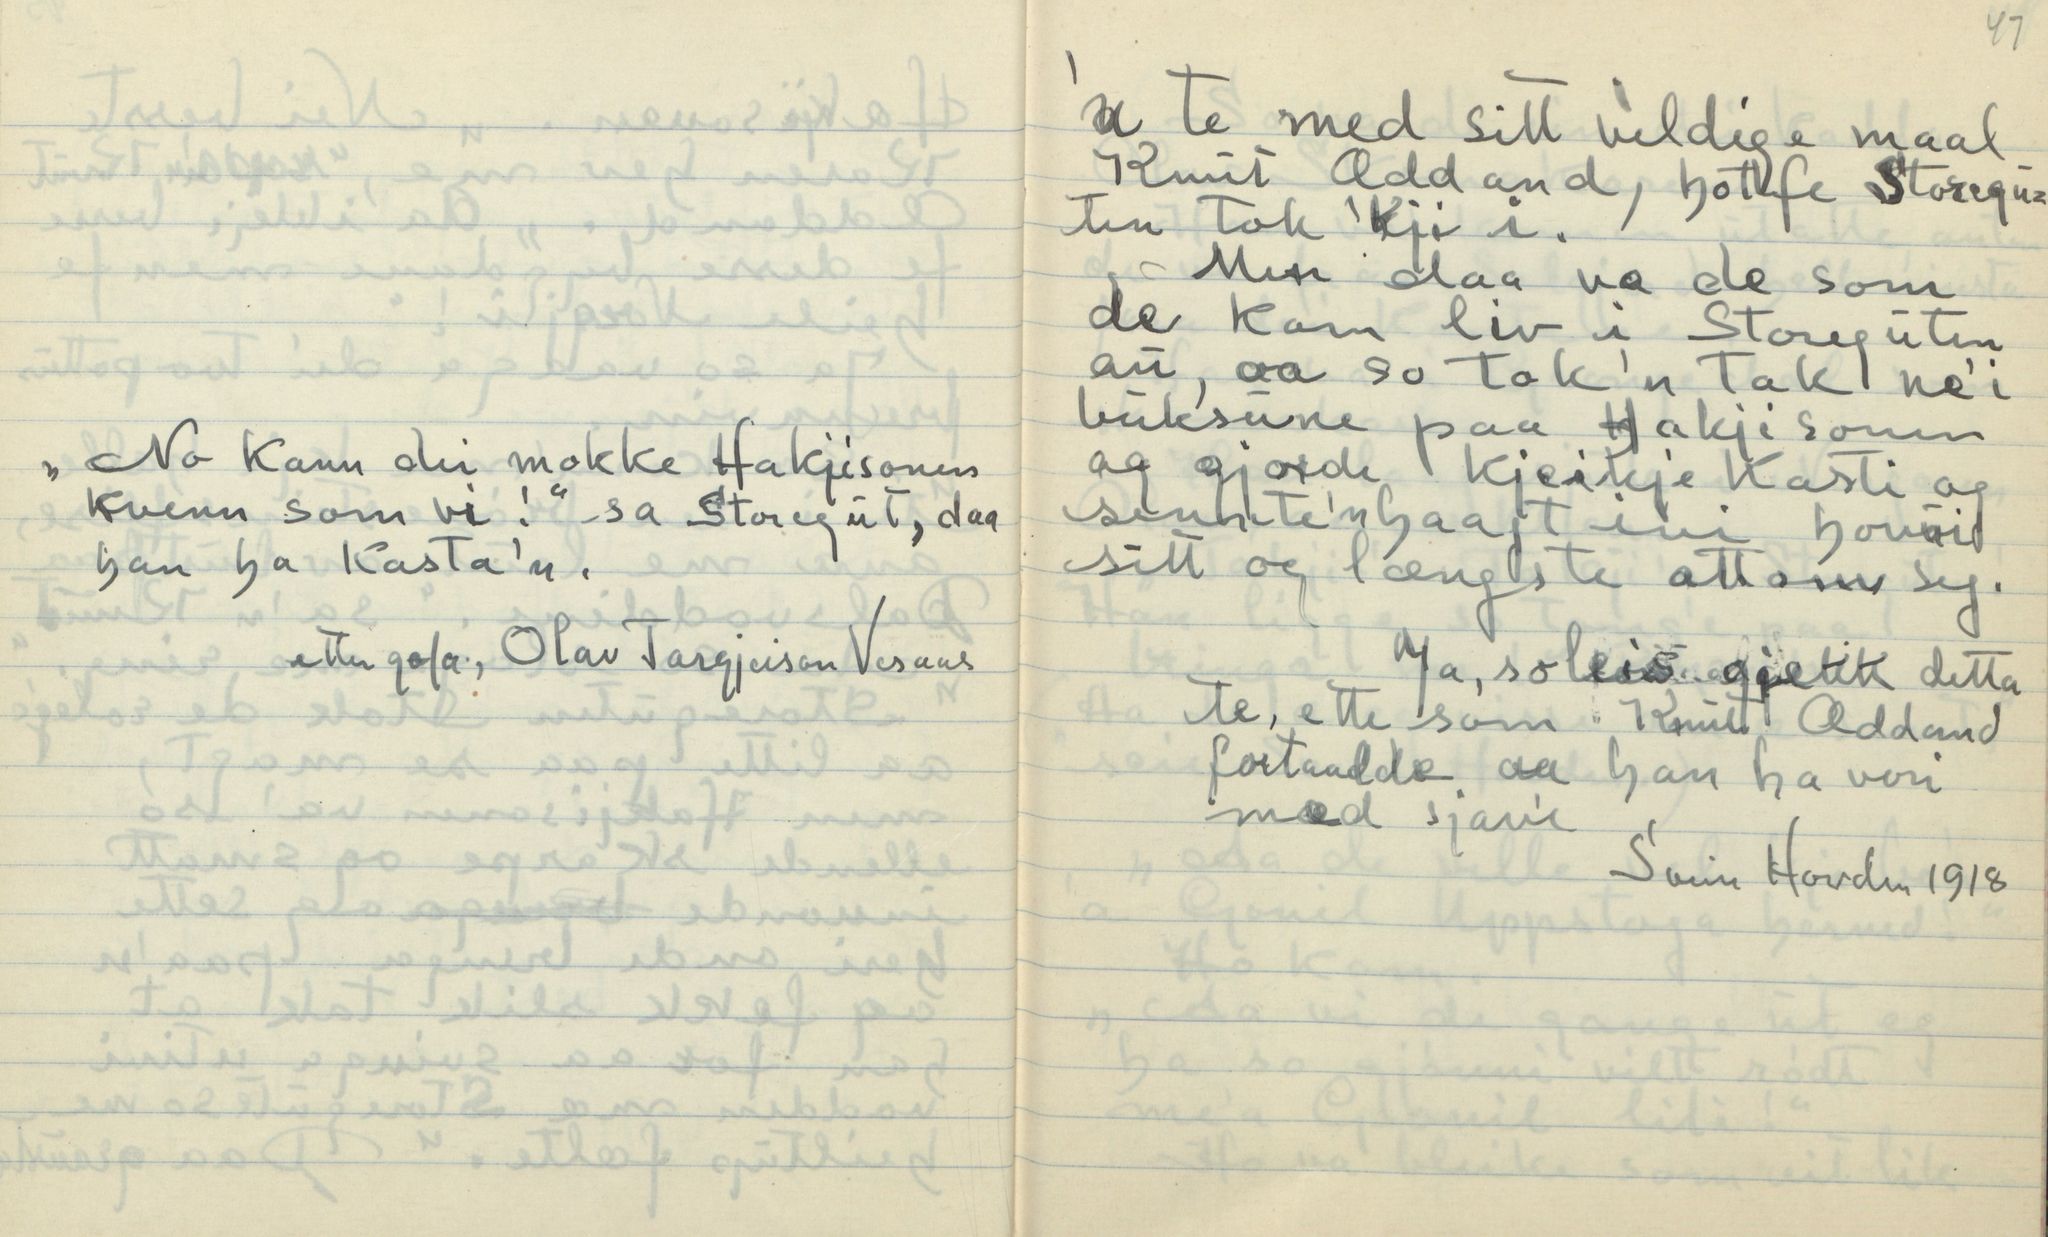 „No kann dei mokke Hakjisonen
kvenn som vi!“ sa Storegūt, daa
han ha kasta'n.
etter gofa, Olav Targjeison Vesaas
47
'n te med sitt veldige maal
Knūt Oddand, hott fe Storegū-
ten tok 'kji i.
Men daa va de som
de kom liv i Storegūten
aū, aa so tok'n tak ne'i
būksūne paa Hakjisonen
og gjorde kjeikje kasti og
sennte'n haagt ivi hovūid
sitt og længste attom seg.
Ja, soleis gjekk detta
te, ette som Knūt Oddand
fortaadde aa han ha vori
med sjav'e
Svein Hovden 1918